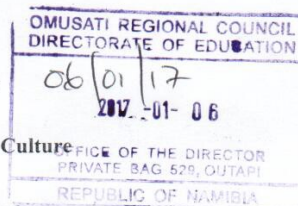 OMUSATI REGIONAL COUNCIL
DIRECTORATE OF EDUCATION
06/01/17
2017 -01- 06
Culture
OFFICE OF THE DIRECTOR
PRIVATE BAG 529, OUTAPI
REPUBLIC OF NAMIBIA